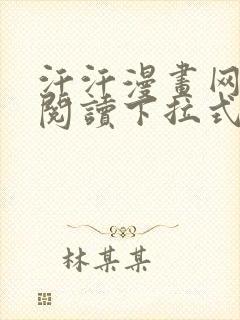 汗汗漫畫网
閱讀下拉式
林某某